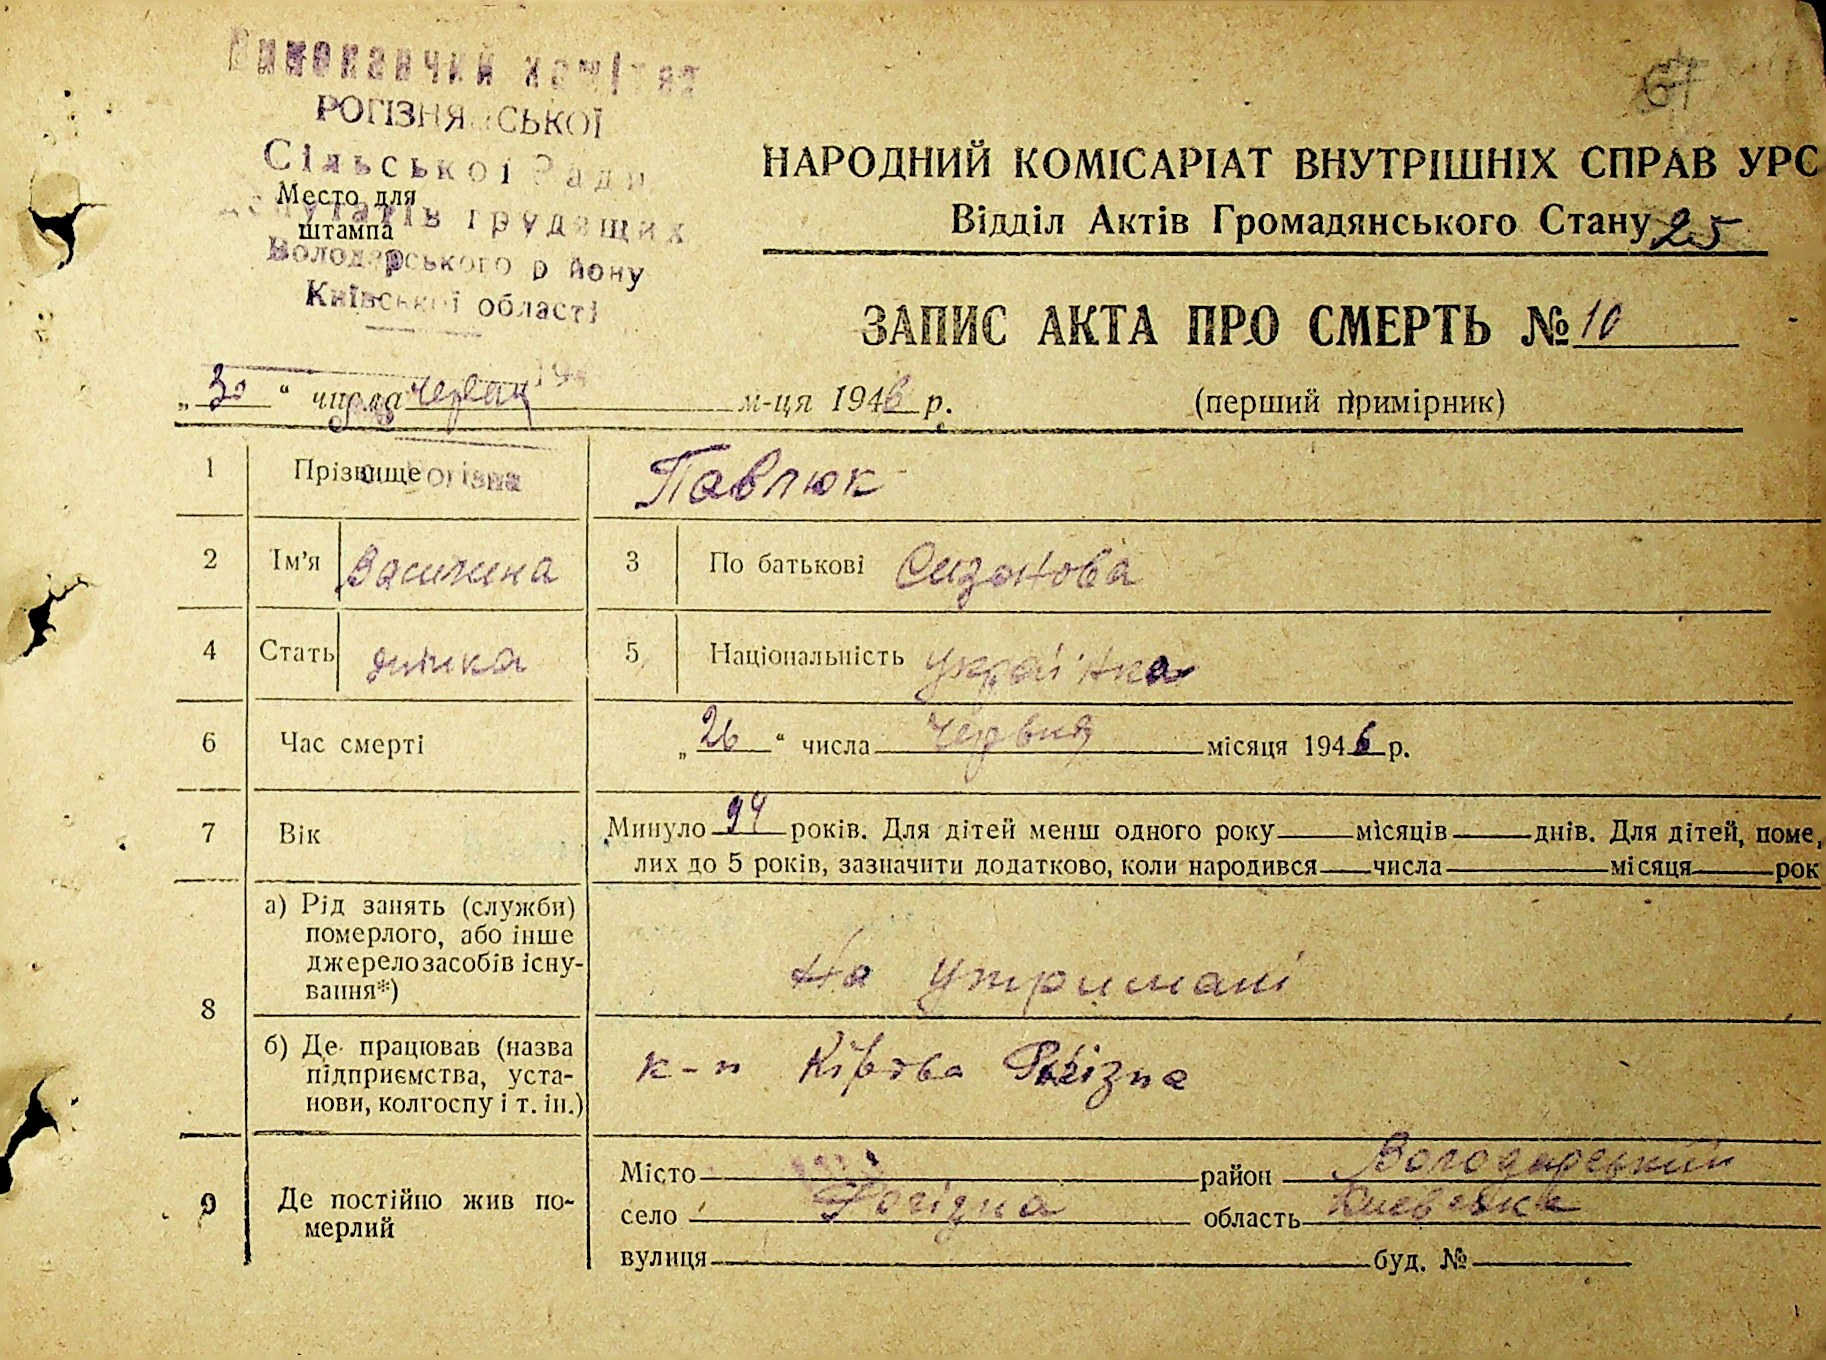 Виконавчий комітет
РОГІЗНЯНСЬКОЇ
Сільської Ради
депутатів трудящих
Володарського району
Київської області
Место для
штампа
67
НАРОДНИЙ КОМІСАРІАТ ВНУТРІШНІХ СПРАВ УРС
Відділ Актів Громадянського Стану 25
ЗАПИС АКТА ПРО СМЕРТЬ № 10
„30“ числа червня м-ця 1946 р. (перший примірник)
1 Прізвище Павлюк
2 Ім'я Василина 3 По батькові Сизонова
4 Стать жінка 5 Національність українка
6 Час смерті „26“ числа червня місяця 1946 р.
7 Вік Минуло 94 років. Для дітей менш одного року місяців днів. Для дітей, поме,
лих до 5 років, зазначити додатково, коли народився числа місяця рок
8 а) Рід занять (служби)
померлого, або інше
джерело засобів існу-
вання*)
На утримані
б) Де працював (назва
підприємства, уста-
нови, колгоспу і т. ін.)
к-п Кірова Рогізна
9 Де постійно жив по-
мерлий
Місто район Володарський
село Рогізна область Киевська
вулиця буд. №